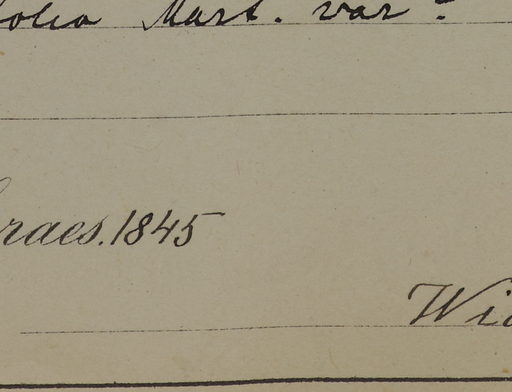 folia Mart. var.
raes. 1845
Wid